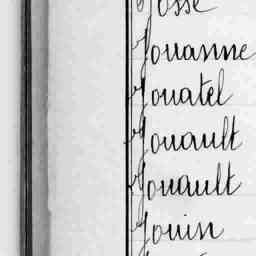 Josse
Jouanne
Jouatel
Jouault
Jouault
Jouin